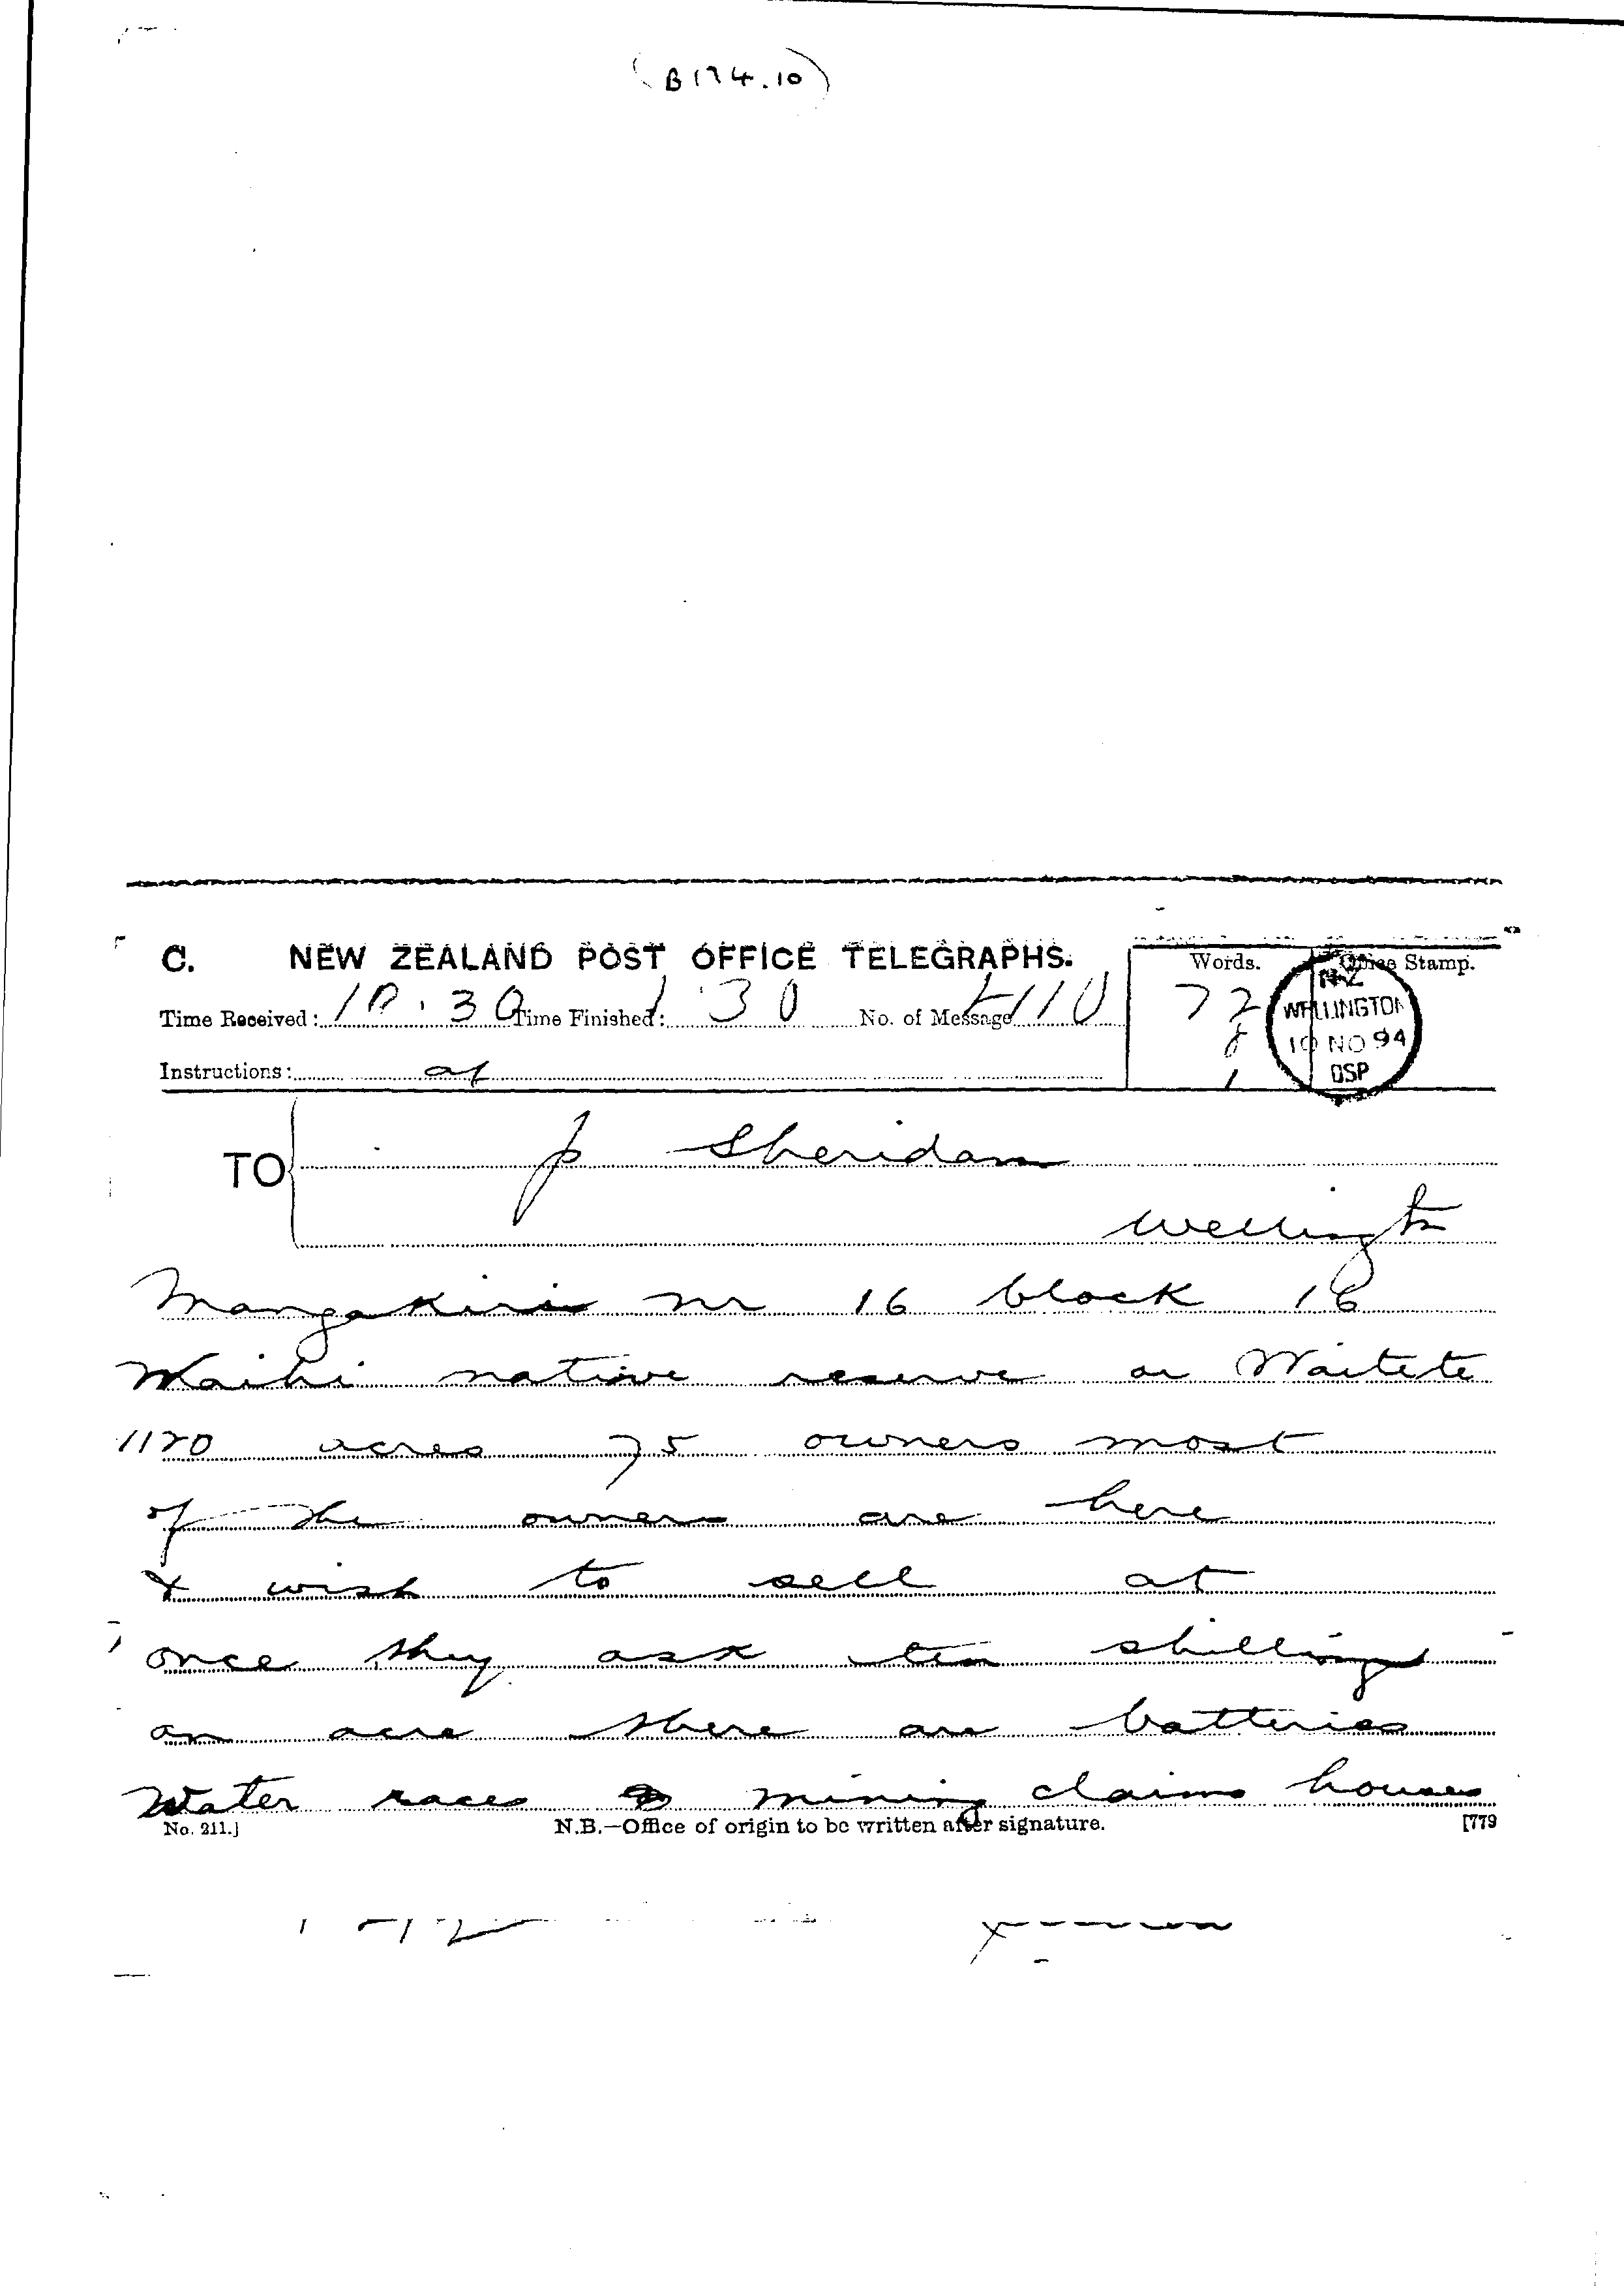 (B194.10)
C. NEW ZEALAND POST OFFICE TELEGRAPHS.
Words. Office Stamp.
Time Received: 10.30 Time Finished: 1.30 No. of Message 110
72
8
1
N.Z
WELLINGTON
10 NO 94
OSP
Instructions:
TO p Sheridan
Wellingtn
Mangakiri nr 16 block 16
Waihi native reserve or Waitete
1120 acres 75 owners most
of the owners are here
& wish to sell at
once they ask ten shillings
an acre there are batteries
Water races & mining claims houses
No. 211.] N.B.—Office of origin to be written after signature. [779